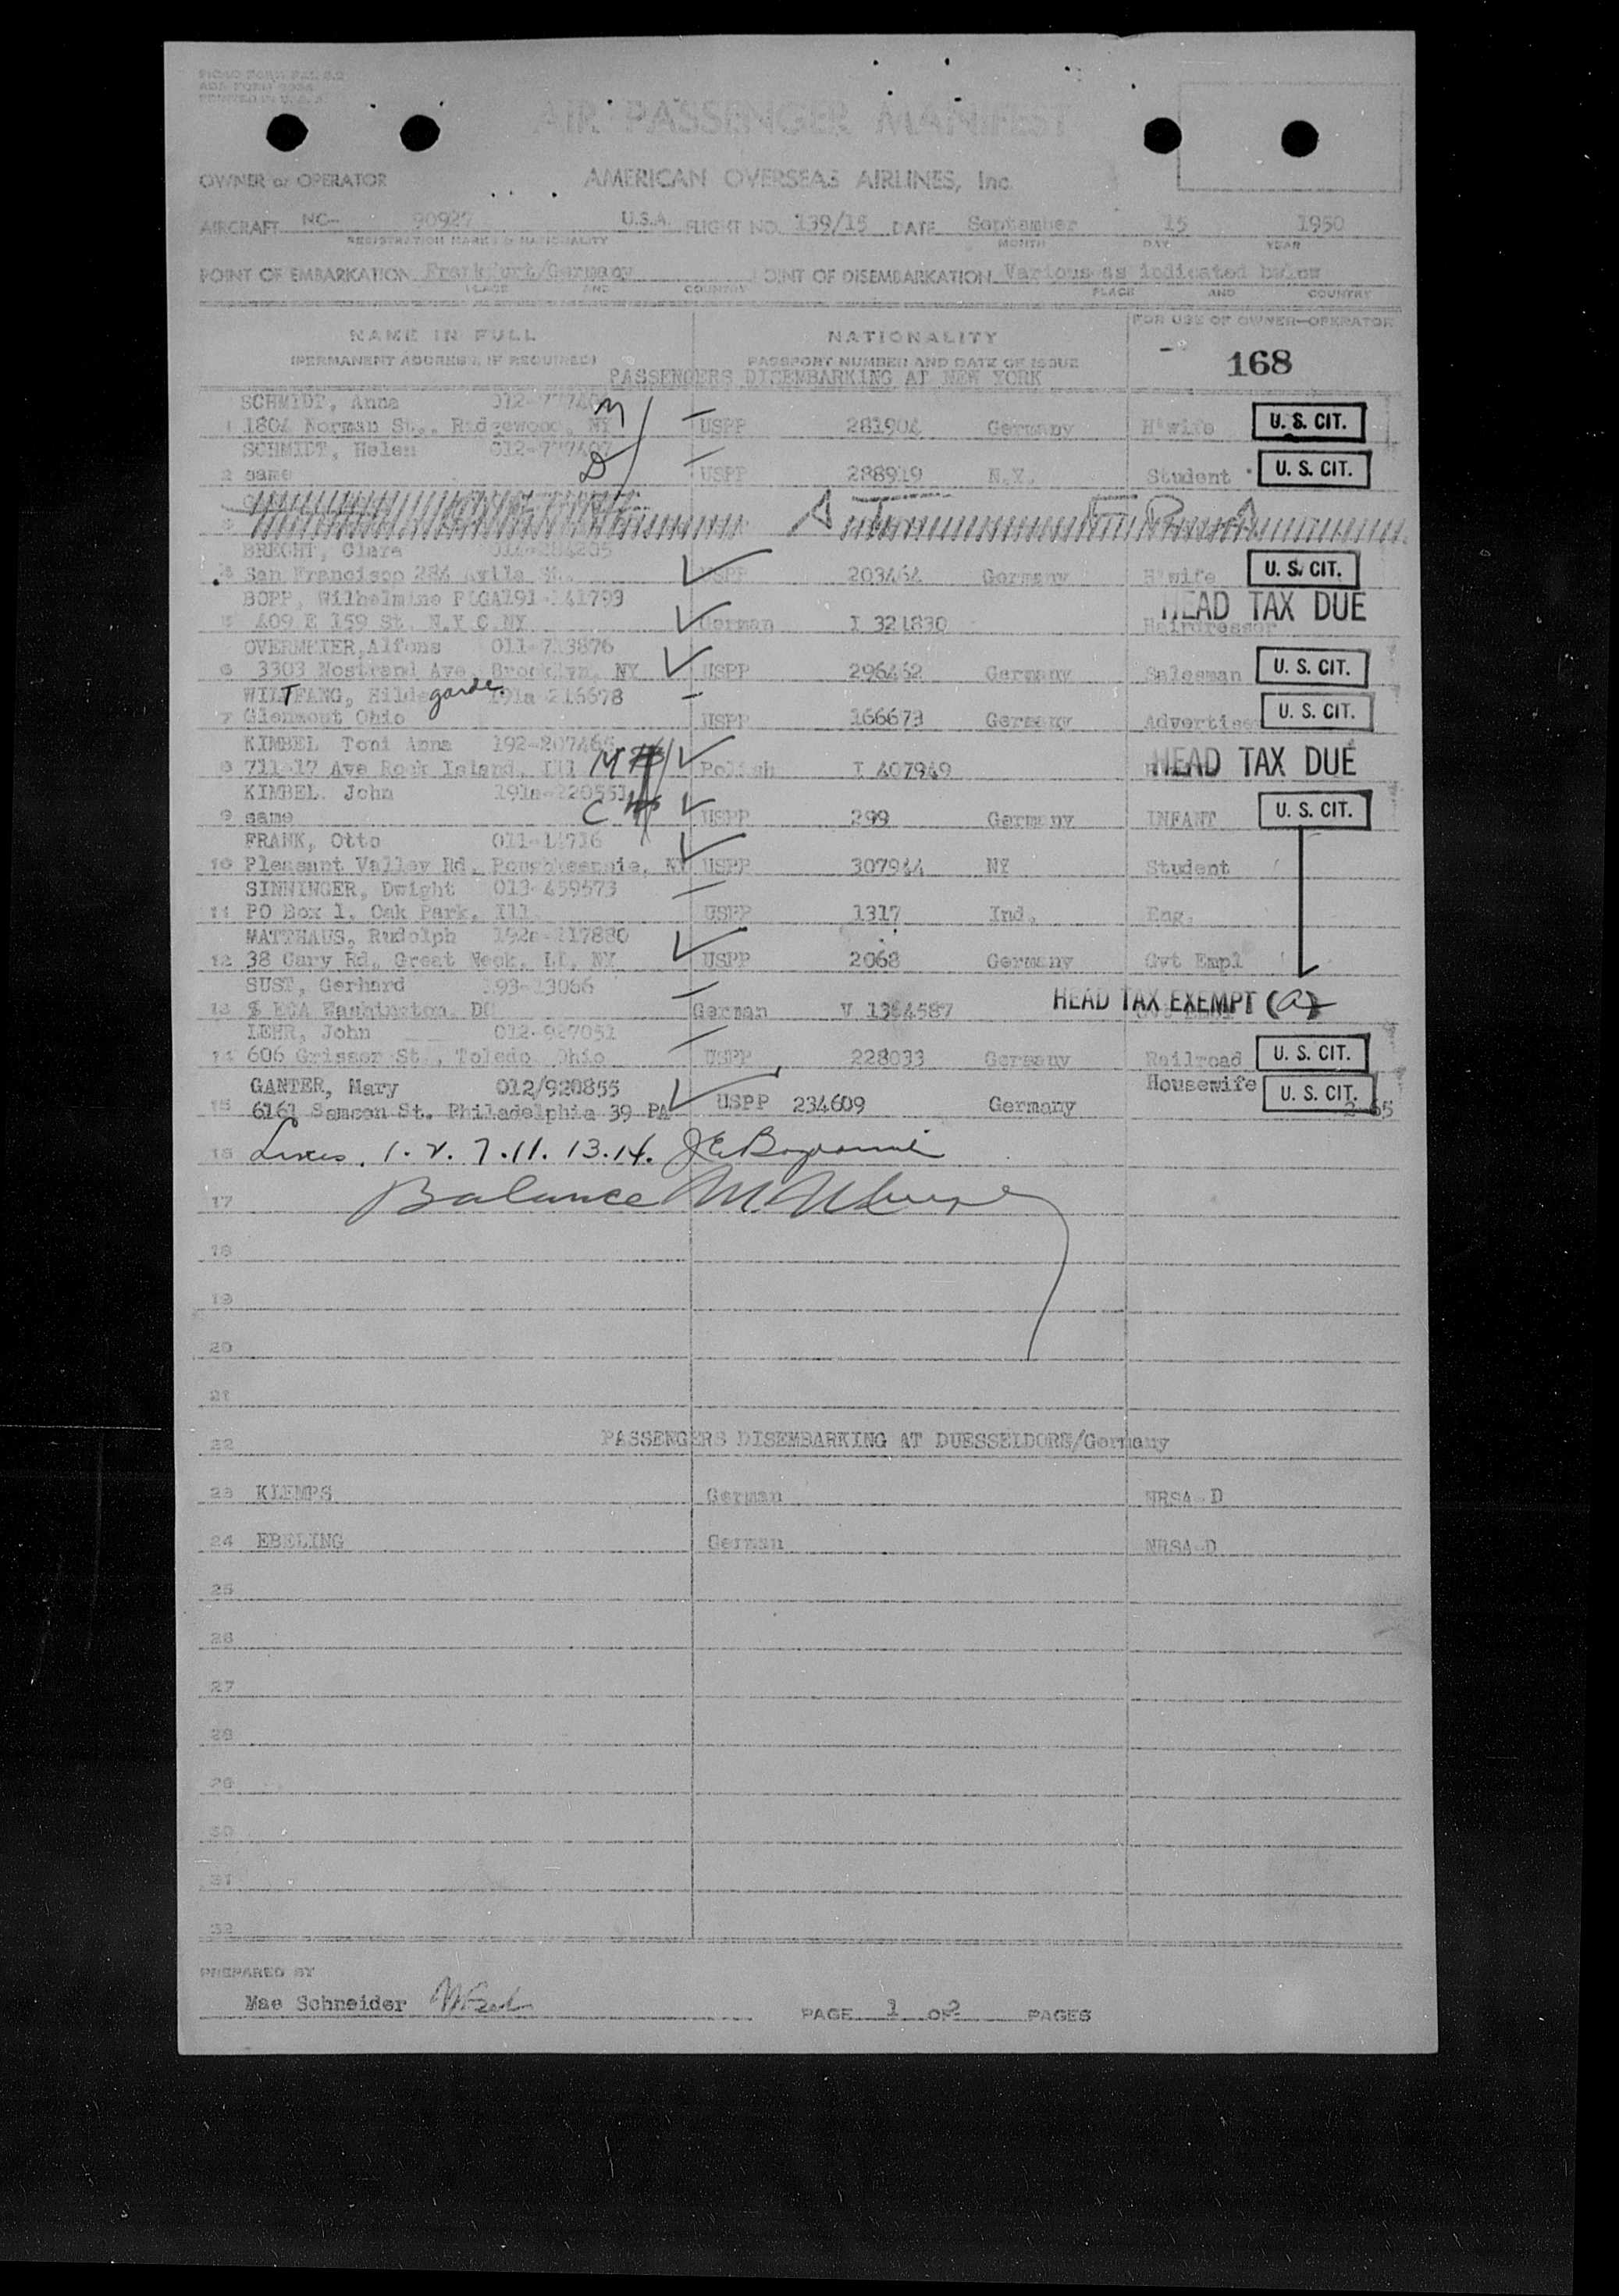 AIR PASSENGER MANIFEST
OWNER or OPERATOR AMERICAN OVERSEAS AIRLINES, Inc.
AIRCRAFT NC- 90927 U.S.A. FLIGHT NO. 139/15 DATE September 15 1950
REGISTRATION MARKS & NATIONALITY MONTH DAY YEAR
POINT OF EMBARKATION Frankfurt/Germany POINT OF DISEMBARKATION Various as indicated below
PLACE AND COUNTRY PLACE AND COUNTRY
NAME IN FULL NATIONALITY FOR USE OF OWNER—OPERATOR
(PERMANENT ADDRESS, IF REQUIRED) PASSPORT NUMBER AND DATE OF ISSUE 168
PASSENGERS DISEMBARKING AT NEW YORK
SCHMIDT, Anna M
1 1804 Norman St., Ridgewood, NY USPP 281904 Germany H'wife U. S. CIT.
SCHMIDT, Helen D
2 same USPP 288919 N.Y. Student U. S. CIT.
BRECHT, Clara
San Francisco 284 USPP 203464 Germany H'wife U. S. CIT.
BOPP, Wilhelmine HEAD TAX DUE
5 409 E 159 St. N.Y.C. NY German I 321830 Hairdresser
OVERMEYER, Alfons
6 3303 Nostrand Ave. Brooklyn, NY USPP 296462 Germany Salesman U. S. CIT.
WILTFANG, Hildegarde 191a 216678
7 Glenmont Ohio USPP 166673 Germany U. S. CIT.
KIMBEL Toni Anna M
8 711-17 Ave Rock Island, Ill Polish I 407949 HEAD TAX DUE
KIMBEL. John 191a-220551 C
9 same USPP 299 Germany INFANT U. S. CIT.
FRANK, Otto
10 Pleasant Valley Rd. Poughkeepsie, NY USPP 307944 NY Student
SINNINGER, Dwight 013-459573
11 PO Box 1, Oak Park, Ill. USPP 1317 Ind. Eng.
MATTHAUS, Rudolph
12 38 Cary Rd. Great Neck, LI, NY USPP 2068 Germany Gvt Empl
SUST, Gerhard
13 % ECA Washington, DC German V 1354587 HEAD TAX EXEMPT (a)
LEHR, John 012-927051
14 606 St., Toledo Ohio USPP 228033 Germany Railroad U. S. CIT.
GANTER, Mary 012/920855 Housewife
15 6161 Samson St. Philadelphia 39 PA USPP 234609 Germany U. S. CIT.
16 Lines. 1. 2. 7. 11. 13. 14.
17 Balance
18
19
20
21
22 PASSENGERS DISEMBARKING AT DUESSELDORF/Germany
23 KLEMPS German NRSA-D
24 EBELING German NRSA-D
25
26
27
28
29
30
31
32
PREPARED BY
Mae Schneider
PAGE 1 OF 2 PAGES